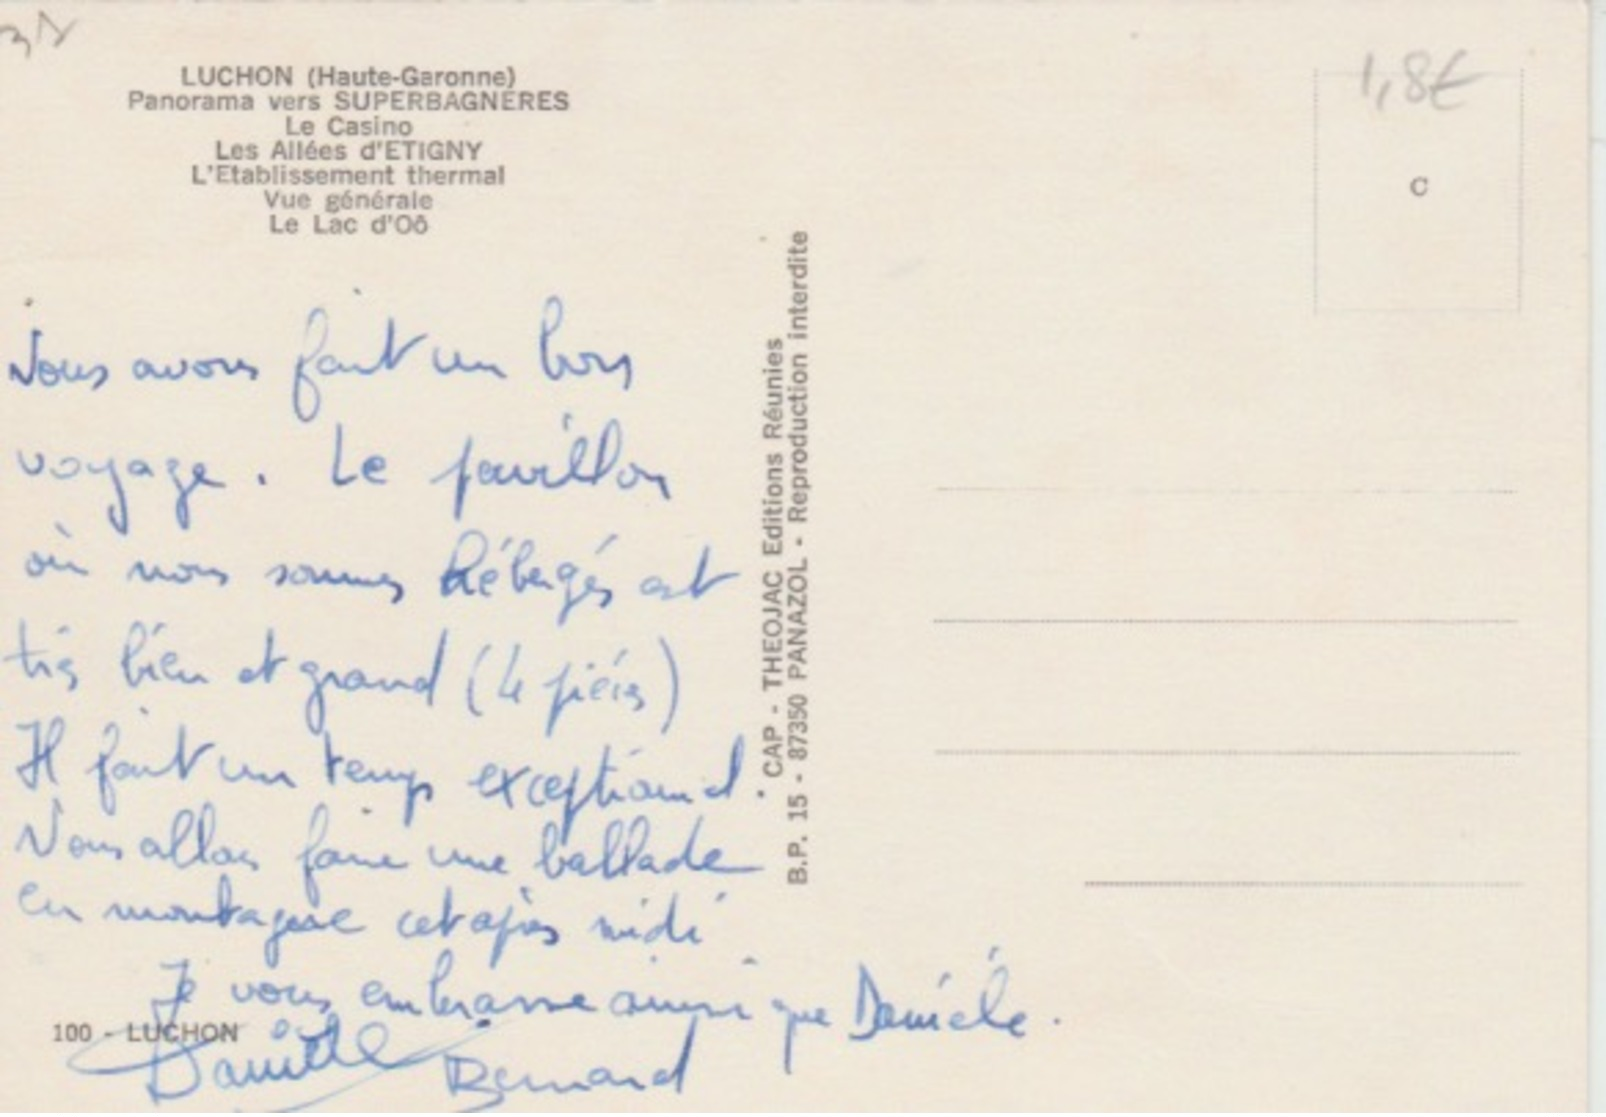 LUCHON (Haute-Garonne)
Panorama vers SUPERBAGNERES
Le Casino
Les Allées d'ETIGNY
L'Etablissement thermal
Vue générale
Le Lac d'Oô
1,8€
C
Nous avons fait un bon
voyage. Le pavillon
où nous sommes hébergés est
très bien et grand (4 pièces)
Il fait un temps exceptionnel.
Nous allons faire une ballade
en montagne cet après midi
Je vous embrasse ainsi que Danièle.
Danièle Bernard
100 - LUCHON
CAP - THEOJAC Editions Réunies
B.P. 15 - 87350 PANAZOL - Reproduction interdite